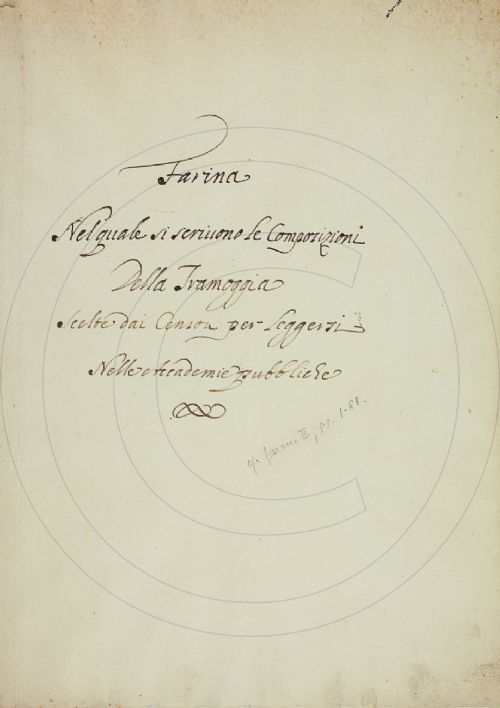 Farina
Nel quale si scrivono le Composizioni
Della Tramoggia
Scelte dai Censori per leggersi
Nelle Accademie pubbliche
cf. farina II, pp. 1-81.